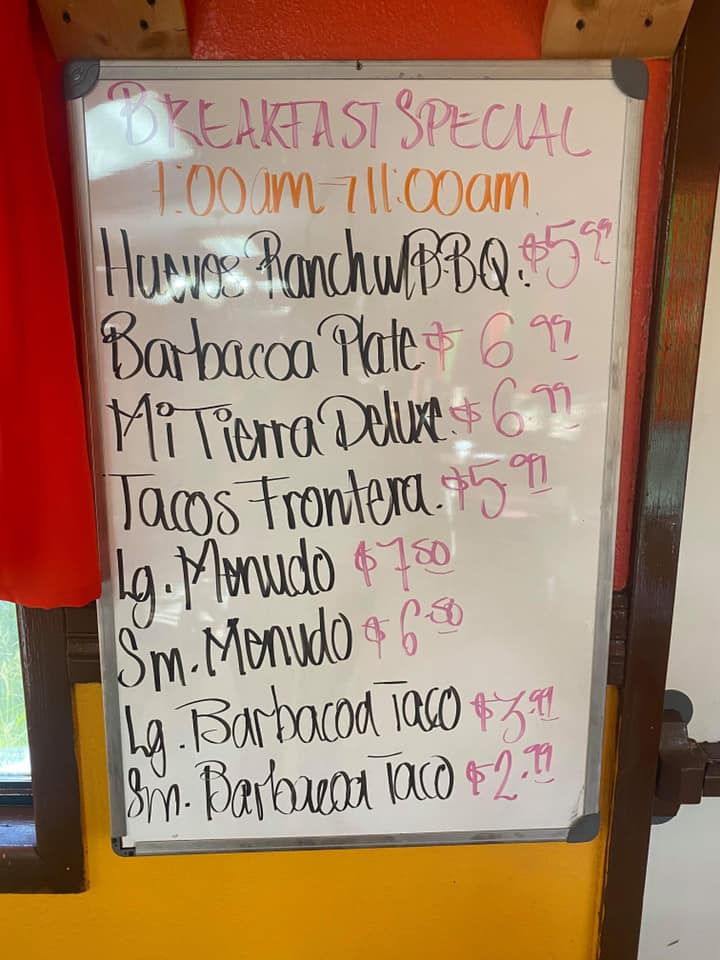 BREAKFAST SPECIAL
7:00am-11:00am
Huevos Ranch w/ B·BQ. $5.99
Barbacoa Plate $6.99
Mi Tierra Deluxe. $6.99
Tacos Frontera. $5.99
Lg. Menudo $7.50
Sm. Menudo $6.50
Lg. Barbacoa Taco $3.99
Sm. Barbacoa Taco $2.99